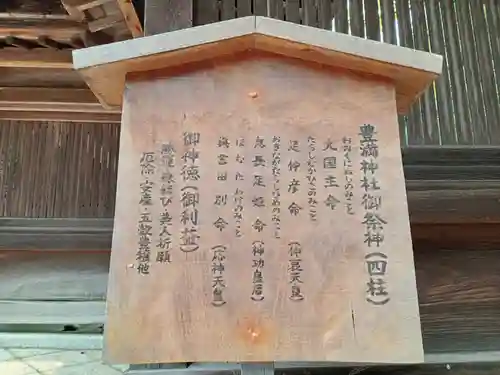 豊満神社御祭神(四柱)
おおくにぬしのみこと
大国主命
たらしなかひこのみこと
足仲彦命(仲哀天皇)
おきながたらしひめのみこと
息長足姫命(神功皇后)
ほむたわけのみこと
誉田別命(応神天皇)
御神徳(御利益)
縁結び・美人祈願
厄除・安産・五穀豊穣他